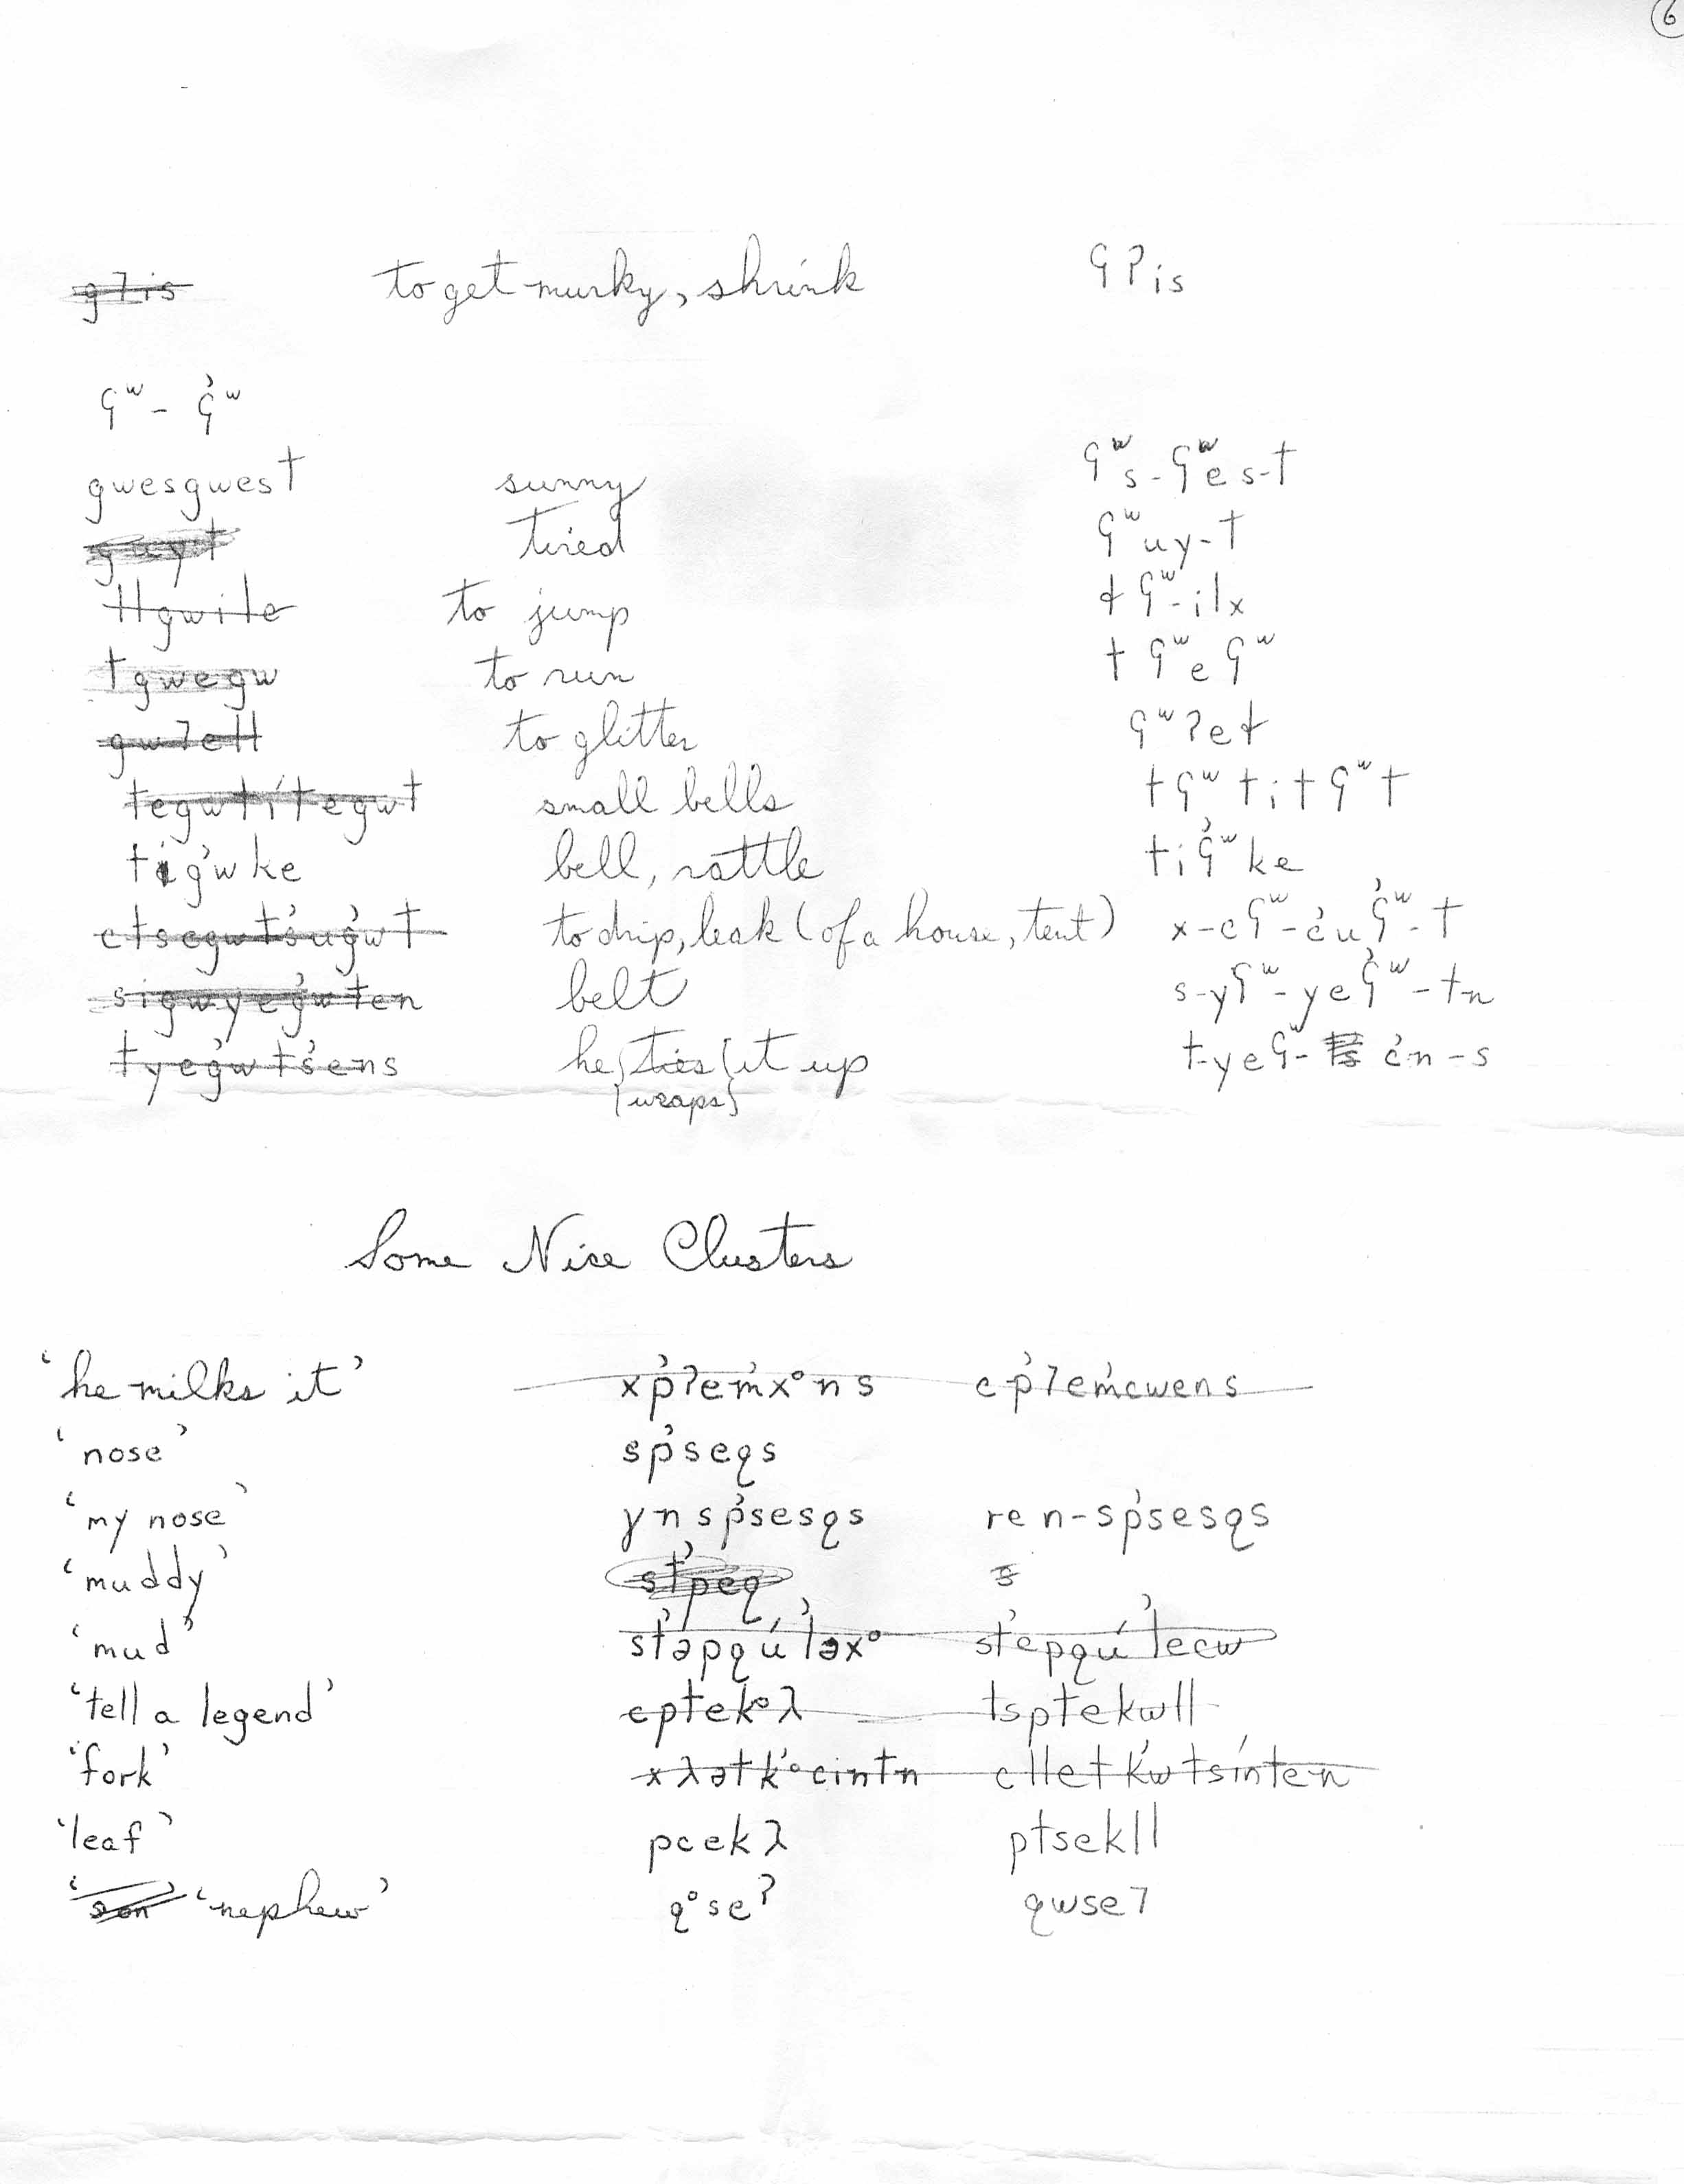 6
g7is to get murky, shrink ʕʔis
ʕʷ - ʕ̓ʷ
gwesgwest sunny ʕʷs-ʕʷes-t
guyt tired ʕʷuy-t
llgwilc to jump ɬʕʷ-ilx
tgwegw to run tʕʷeʕʷ
gw7ell to glitter ʕʷʔeɬ
tegwtítegwt small bells tʕʷtitʕʷt
tig̓wke bell, rattle tiʕ̓ʷke
ctsegwts̓ug̓wt to drip, leak (of a house, tent) x-cʕʷ-c̓uʕ̓ʷ-t
sigwyeg̓wten belt s-yʕʷ-yeʕ̓ʷ-tn
tyeg̓wts̓ens he {ties} it up t-yeʕ̓ʷ- ts c̓n-s
{wraps}
Some Nice Clusters
‘he milks it’ xp̓ʔem̓x°ns cp̓7em̓cwens
‘nose’ sp̓seqs
‘my nose’ ɣnsp̓sesqs ren-sp̓sesqs
‘muddy’ st̓peq s
‘mud’ st̓əpqú l̓əx° st̓epqú l̓ecw
‘tell a legend’ cptek°λ tsptekwll
‘fork’ xλətk̓°cintn clletk̓wtsínten
‘leaf’ pcekλ ptsekll
‘son’ ‘nephew’ q°seʔ qwse7